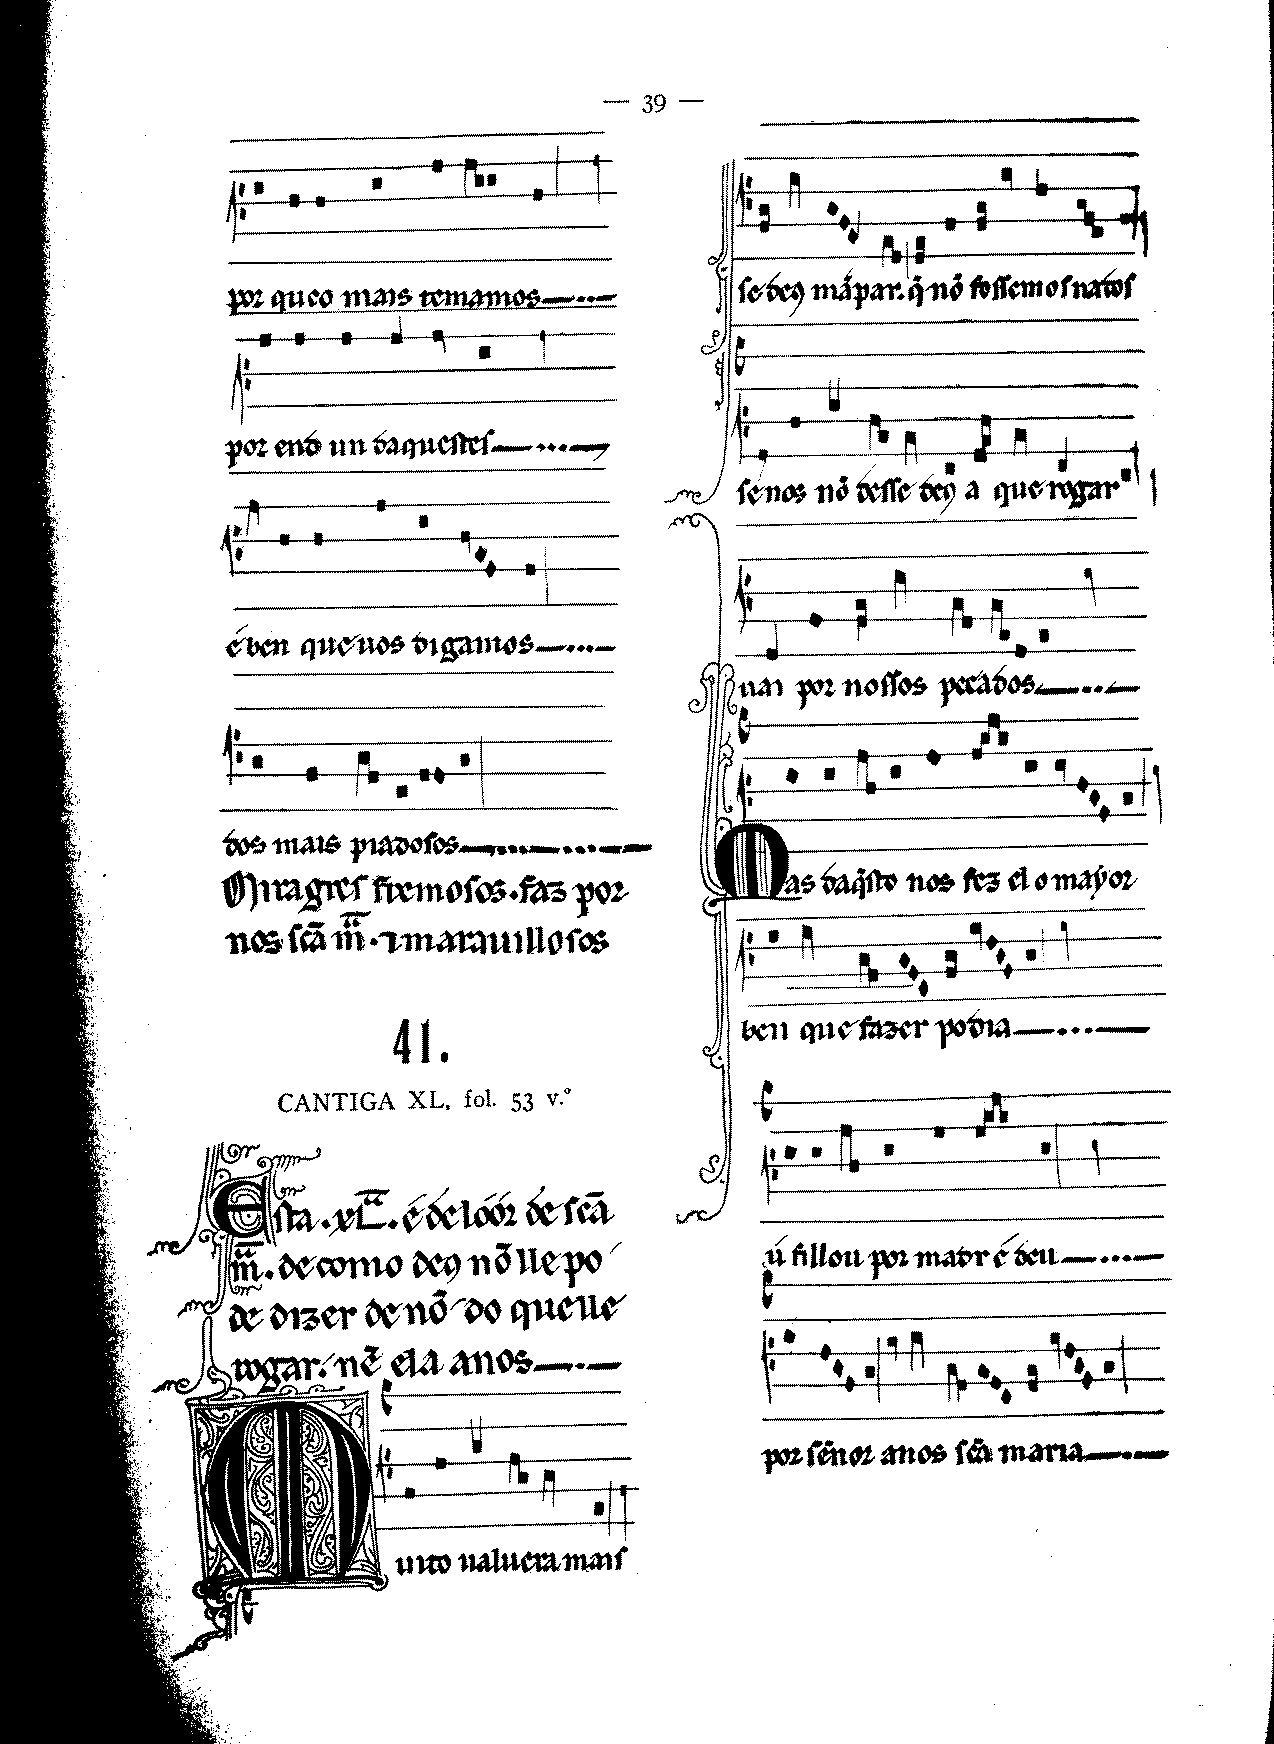 — 39 —
por queo mais temamos
por end un daquestes
é ben que uos digamos
dos mais piadosos
Miragres fremosos. faz por
nos scã m̃. ⁊ marauillosos
41.
CANTIGA XL, fol. 53 v.º
Esta .xL. é de loór de scã
m̃. de como deꝯ nõ lle po
de dizer de nõ do quelle
rogar. nẽ ela anos
Muito ualuera mais
se deꝯ mãpar. q̃ nõ fossemos nados
se nos nõ desse deꝯ a que rogar
uai por nossos pecados
Mas daq̃sto nos fez el o mayor
ben que fazer podia
ú fillou por madr é deu
por sẽnor anos scã maria